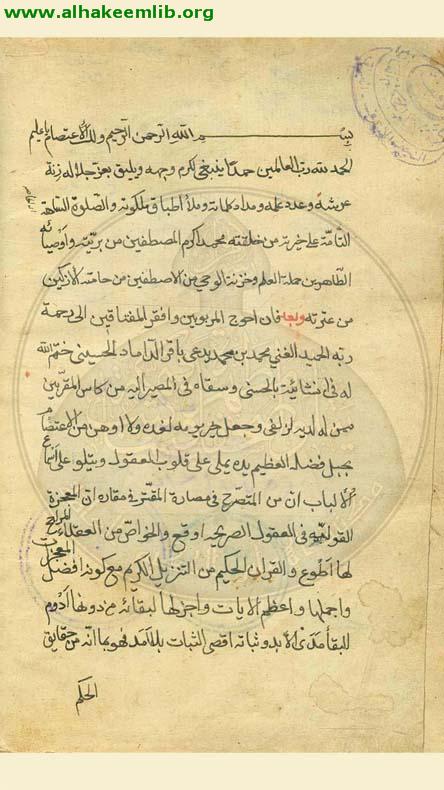 www.alhakeemlib.org
بسم الله الرحمن الرحيم ولك الاعتصام يا عليم
الحمد لله رب العالمين حمدا ينبغي لكرم وجهه ويليق بعز جلاله زنة
عرشه وعدد علمه ومداد كلماته وملأ اطباق ملكوته والصلوة
التامة على خيرته من خليقته محمد اكرم المصطفين من بريته واوصيائه
الطاهرين حملة العلم وخزنة الوحي من الاصطفين من حامته الازكين
من عترته وبعد فان احوج المربوبين وافقر المفتاقين الى رحمة
ربه الحميد الغني محمد بن محمد يدعى باقر الداماد الحسيني ختم الله
له في نشأتيه بالحسنى وسقاه في المصير اليه من كاس المقربين
ممن له لديه لزلفى وجعل خير يوميه لغده ولا اوهن من الاعتصام
بحبل فضله العظيم يده يملى على قلوب العقول ويتلو على اسماع
الالباب ان من المتصرح في مقاره ان المعجزة
القولية في العقول الصريحة اوقع والخواص من العقلاء
لها اطوع والقران الحكيم من التنزيل الكريم مع كونه افضل المعجزات
واجملها واعظم الايات واجزلها لبقائه من دونها ادوم
للبقا مدى الابد وثباته اقصى الثبات بلا امد فهو بما انه من حقايق
الحكم